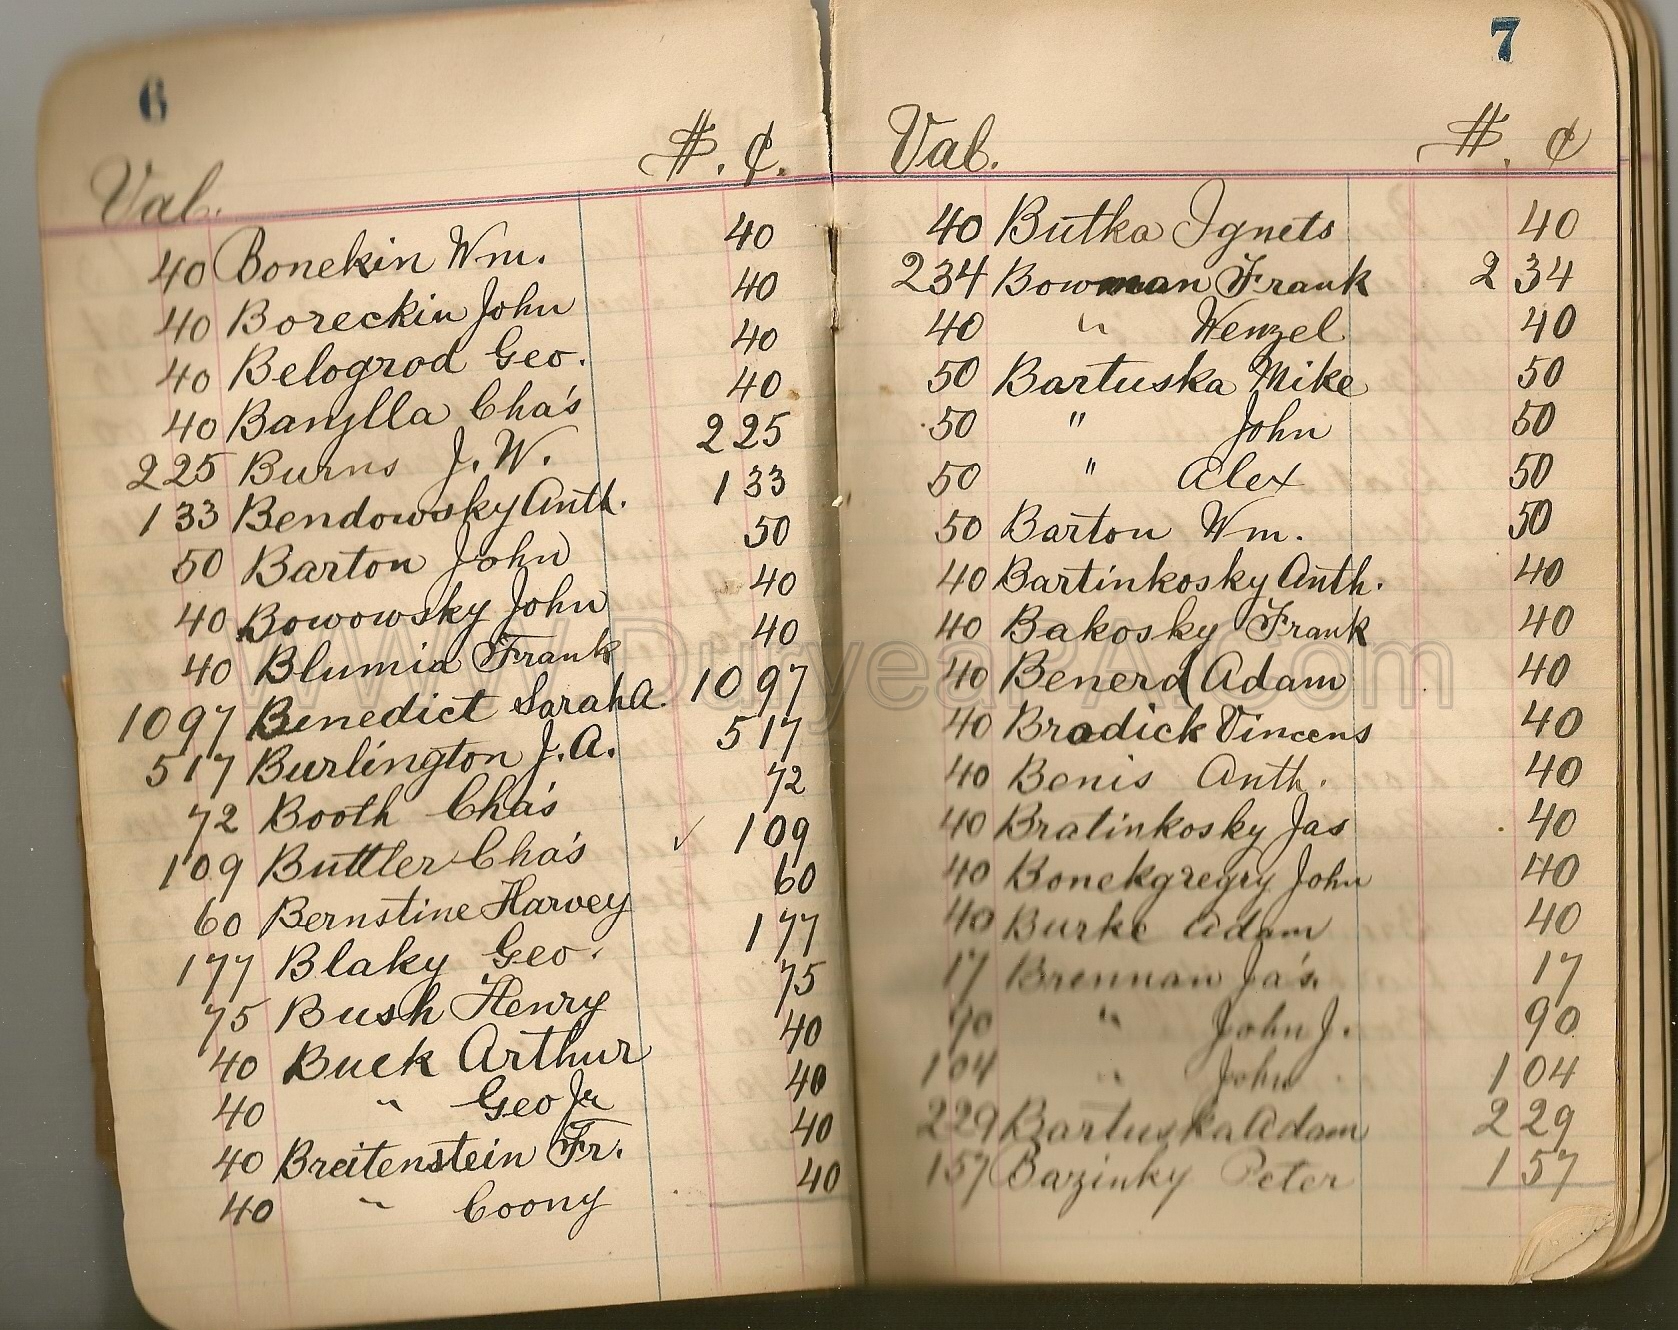 6
Val. $. ¢.
40 Bonekin Wm. 40
40 Boreckin John 40
40 Belogrod Geo. 40
40 Banylla Cha's 40
225 Burns J. W. 2 25
133 Bendowsky Anth. 1 33
50 Barton John 50
40 Bowowsky John 40
40 Blumia Frank 40
1097 Benedict Sarah A. 10 97
517 Burlington J. A. 5 17
72 Booth Cha's 72
109 Buttler Cha's ✓ 1 09
60 Bernstine Harvey 60
177 Blaky Geo. 1 77
75 Bush Henry 75
40 Buck Arthur 40
40 " Geo Jr 40
40 Breitenstein Fr. 40
40 " Coony 40
7
Val. $. ¢
40 Butka Ignets 40
234 Bowman Frank 2 34
40 " Wenzel 40
50 Bartuska Mike 50
50 " John 50
50 " Alex 50
50 Barton Wm. 50
40 Bartinkosky Anth. 40
40 Bakosky Frank 40
40 Benerd Adam 40
40 Bradick Vincens 40
40 Benis Anth. 40
40 Bratinkosky Jas 40
40 Bonekgregry John 40
40 Burke Adam 40
17 Brennan Ja's. 17
90 " John J. 90
104 " John 1 04
229 Bartuska Adam 2 29
157 Bazinky Peter 1 57
WWW.DuryeaPA.com